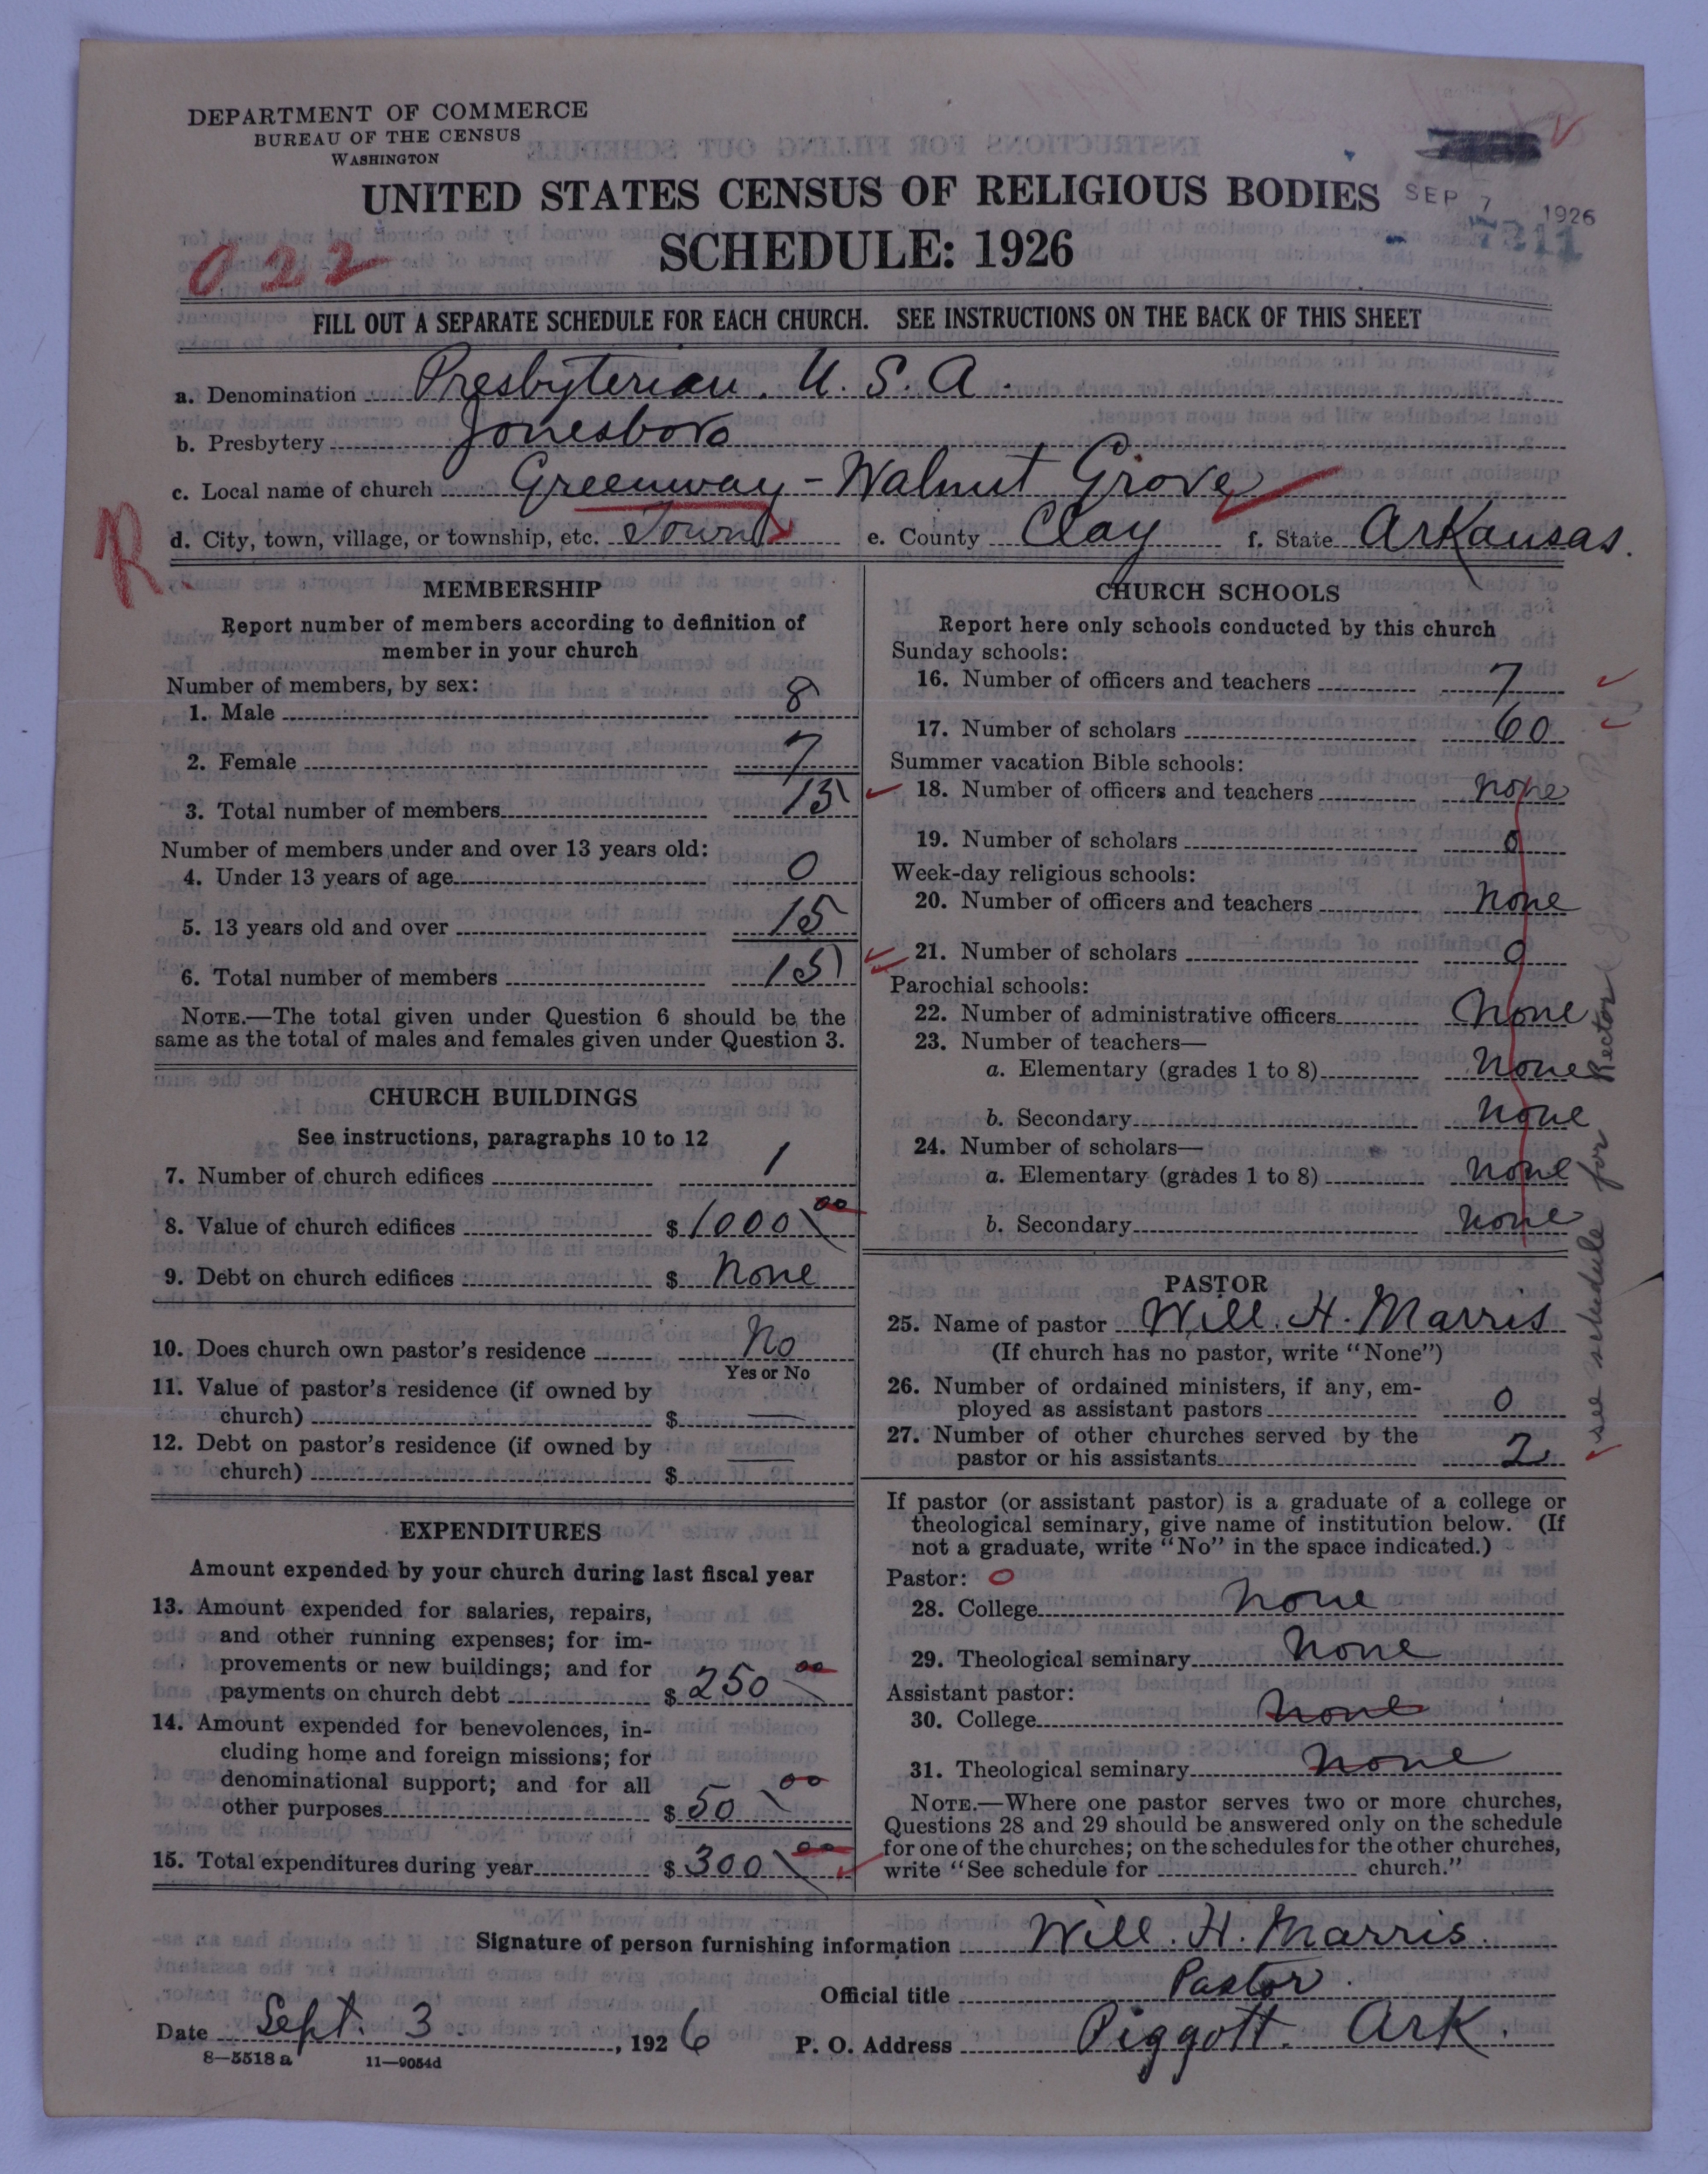 DEPARTMENT OF COMMERCE
BUREAU OF THE CENSUS
WASHINGTON
UNITED STATES CENSUS OF RELIGIOUS BODIES
SEP 7 1926
7211
SCHEDULE: 1926
022
FILL OUT A SEPARATE SCHEDULE FOR EACH CHURCH. SEE INSTRUCTIONS ON THE BACK OF THIS SHEET
a. Denomination Presbyterian. U. S. A.
b. Presbytery Jonesboro
c. Local name of church Greenway - Walnut Grove
R
d. City, town, village, or township, etc. Town e. County Clay f. State Arkansas.
MEMBERSHIP
Report number of members according to definition of
member in your church
Number of members, by sex:
1. Male 8
2. Female 7
3. Total number of members 15
Number of members under and over 13 years old:
4. Under 13 years of age 0
5. 13 years old and over 15
6. Total number of members 15
NOTE.—The total given under Question 6 should be the
same as the total of males and females given under Question 3.
CHURCH BUILDINGS
See instructions, paragraphs 10 to 12
7. Number of church edifices 1
8. Value of church edifices $ 1000 00
9. Debt on church edifices $ None
10. Does church own pastor's residence No
Yes or No
11. Value of pastor's residence (if owned by
church) $ —
12. Debt on pastor's residence (if owned by
church) $ —
EXPENDITURES
Amount expended by your church during last fiscal year
13. Amount expended for salaries, repairs,
and other running expenses; for im-
provements or new buildings; and for
payments on church debt $ 250 00
14. Amount expended for benevolences, in-
cluding home and foreign missions; for
denominational support; and for all
other purposes $ 50 00
15. Total expenditures during year $ 300 00
CHURCH SCHOOLS
Report here only schools conducted by this church
Sunday schools:
16. Number of officers and teachers 7
17. Number of scholars 60
Summer vacation Bible schools:
18. Number of officers and teachers None
19. Number of scholars 0
Week-day religious schools:
20. Number of officers and teachers None
21. Number of scholars 0
Parochial schools:
22. Number of administrative officers None
23. Number of teachers—
a. Elementary (grades 1 to 8) None
b. Secondary None
24. Number of scholars—
a. Elementary (grades 1 to 8) None
b. Secondary None
see schedule for Rector
PASTOR
25. Name of pastor Will. H. Marris
(If church has no pastor, write "None")
26. Number of ordained ministers, if any, em-
ployed as assistant pastors 0
27. Number of other churches served by the
pastor or his assistants 2
If pastor (or assistant pastor) is a graduate of a college or
theological seminary, give name of institution below. (If
not a graduate, write "No" in the space indicated.)
Pastor: 0
28. College None
29. Theological seminary None
Assistant pastor:
30. College None
31. Theological seminary None
NOTE.—Where one pastor serves two or more churches,
Questions 28 and 29 should be answered only on the schedule
for one of the churches; on the schedules for the other churches,
write "See schedule for church."
Signature of person furnishing information Will. H. Marris.
Official title Pastor.
Date Sept. 3. , 1926 P. O. Address Piggott. Ark.
8—5518 a 11—9054d